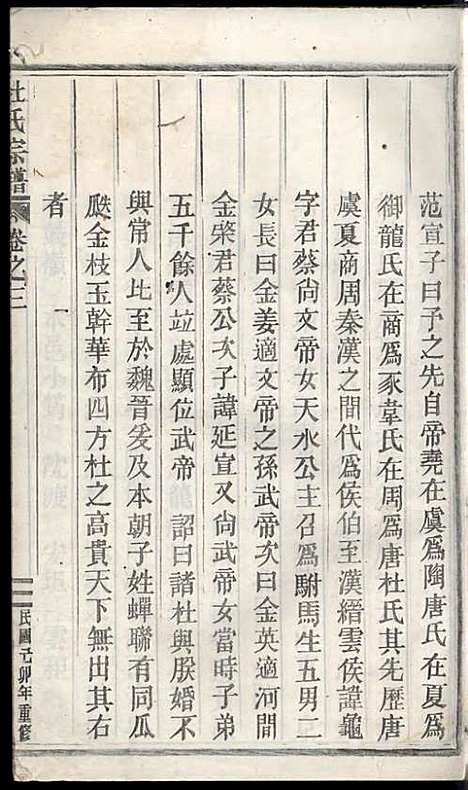 范宣子曰予之先自帝堯在虞爲陶唐氏在夏爲
御龍氏在商爲豕韋氏在周爲唐杜氏其先歷唐
虞夏商周秦漢之間代爲侯伯至漢縉雲侯諱龜
字君蔡尙文帝女天水公主召爲駙馬生五男二
女長曰金姜適文帝之孫武帝次曰金英適河間
金榮君蔡公次子諱延宣又尙武帝女當時子弟
五千餘人竝處顯位武帝詔曰諸杜與朕婚不
與常人比至於魏晉爰及本朝子姓蟬聯有同瓜
瓞金枝玉幹華布四方杜之高貴天下無出其右
者
杜氏宗譜 卷之三
民國己卯年重修